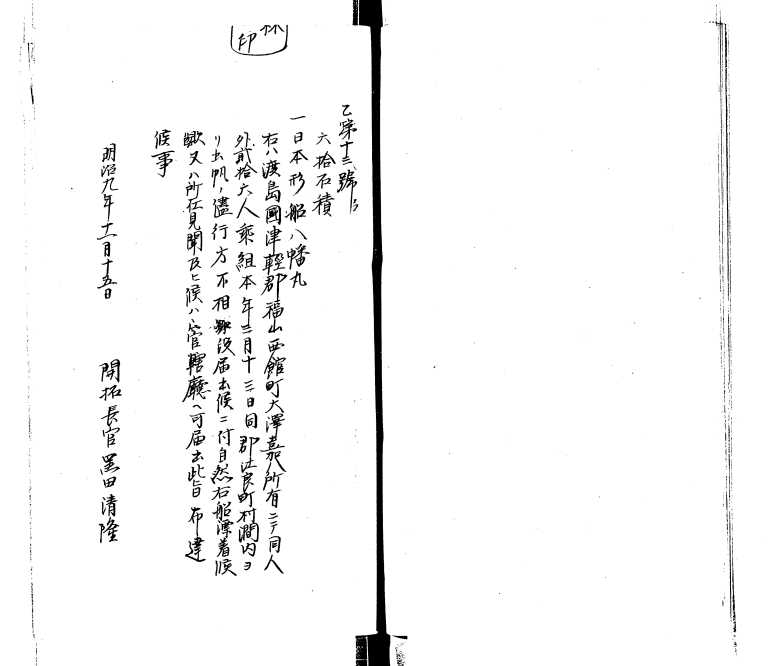 乙第十三號
六拾石積
一日本形船八幡丸
右ハ渡島國津輕郡福山西館町大澤嘉八所有ニテ同人
外貳拾六人乘組本年三月十三日同郡江良町村澗内ヨ
リ出帆ノ儘行方不相知段届出候ニ付自然右船漂着候
歟又ハ所在見聞及ヒ候ハヽ管轄廳ヘ可届出此旨布達
候事
明治九年十二月十五日
開拓長官黒田清隆
印